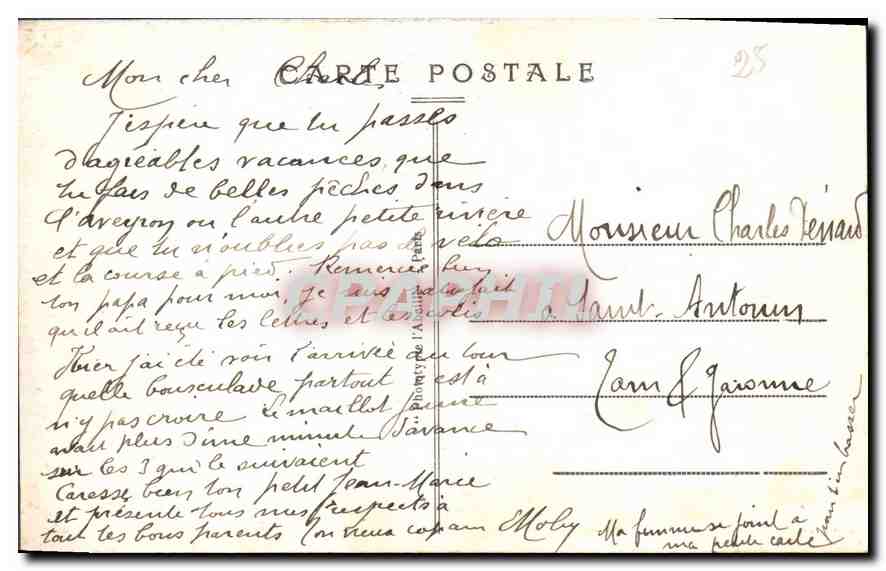 CARTE POSTALE
25
Mon cher Charles
J'espère que tu passes
d'agréables vacances, que
tu fais de belles pêches dans
l'aveyron ou l'autre petite rivière
et que tu n'oublies pas le vélo
et la course à pied. Remercie bien
ton papa pour moi, je suis
qu'il ait reçu les lettres et les colis
Hier j'ai été voir l'arrivée du tour
quelle bousculade partout c'est à
n'y pas croire le maillot jaune
avait plus d'une minute d'avance
sur les 3 qui le suivaient
Caresse bien ton petit Jean-Marie
et présente tous mes respects à
tous tes bons parents Ton vieux copain Moby
Ma femme se joint à
ma petite carte
pour t'embrasser
Monsieur Charles
à Saint-Antonin
Tarn & Garonne
Phototypie l'Abeille, Paris
CPAPHIL